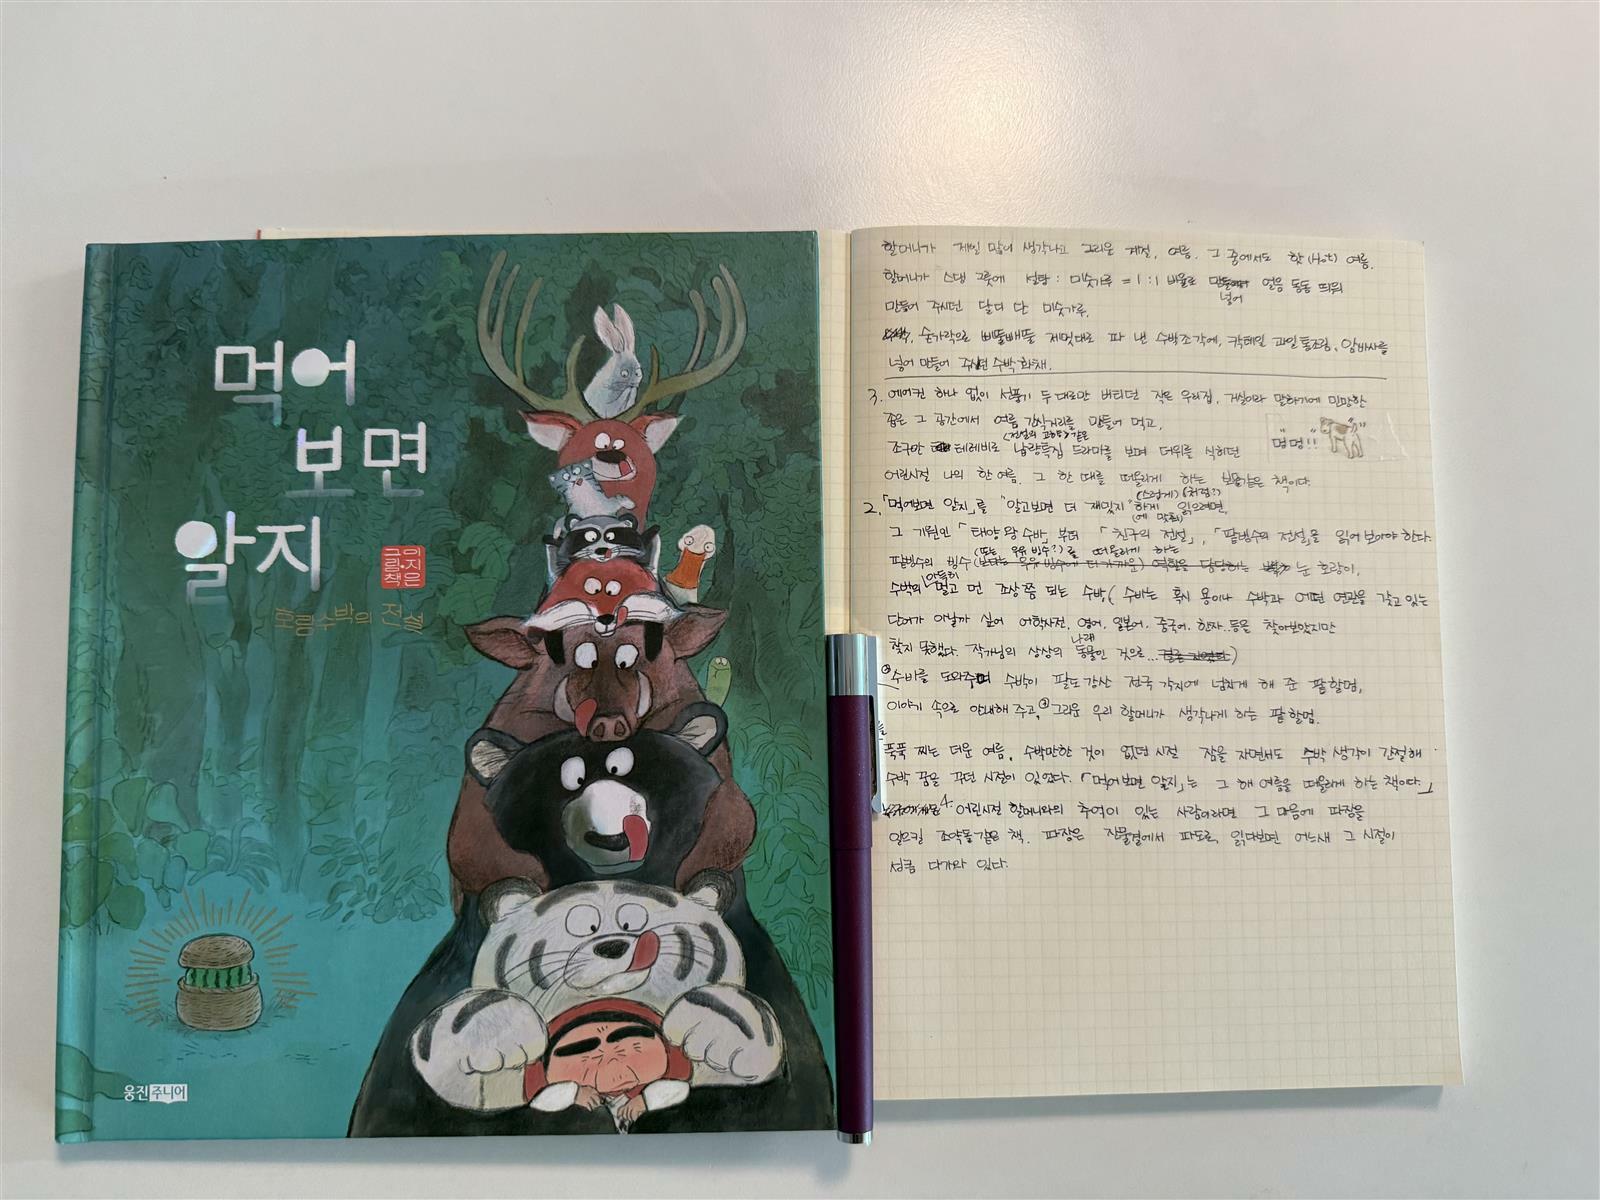 먹어
보면
알지
이지은
그림·책
호랑수박의 전설
웅진주니어
할머니가 제일 많이 생각나고 그리운 계절, 여름. 그 중에서도 핫(Hot) 여름.
할머니가 스댕 그릇에 설탕 : 미숫가루 = 1 : 1 비율로 넣어 얼음 동동 띄워
만들어 주시던 달디 단 미숫가루.
숟가락으로 삐뚤빼뚤 제멋대로 파 낸 수박조각에, 칵테일 과일통조림, 암바사를
넣어 만들어 주시던 수박 화채.
3. 에어컨 하나 없이 선풍기 두 대로만 버티던 작은 우리집, 거실이라 말하기에 민망한
좁은 그 공간에서 여름 간식거리를 만들어 먹고,
(전설의 고향) 같은
조구만 테레비로 납량특집 드라마를 보며 더위를 식히던
"멍멍!!"
어린시절 나의 한 여름. 그 한 때를 떠올리게 하는 보물같은 책이다.
(스럽게) (처럼?)
2. 「먹어보면 알지」를 "알고보면 더 재밌지" 하게 읽으려면,
(에 맞춰)
그 기원인 「태양 왕 수바」부터 「친구의 전설」, 「팥빙수의 전설」을 읽어 보아야 한다.
(또는 우유 빙수?)를 떠올리게 하는
팥빙수의 빙수 (보다는 우유 빙수에 더 가까운) 역할을 담당하는 눈 호랑이,
아득히
수박의 멀고 먼 조상쯤 되는 수바, (수바는 혹시 용이나 수박과 어떤 연관을 갖고 있는
단어가 아닐까 싶어 어학사전, 영어, 일본어, 중국어, 한자..등을 찾아보았지만
찾지 못했다. 작가님의 상상의 나래 동물인 것으로...)
② 수바를 도와주며 수박이 팔도강산 전국 각지에 넘치게 해 준 팥할멈,
이야기 속으로 안내해 주고, ③ 그리운 우리 할머니가 생각나게 하는 팥 할멈.
푹푹 찌는 더운 여름, 수박만한 것이 없던 시절 잠을 자면서도 수박 생각이 간절해
수박 꿈을 꾸던 시절이 있었다. 「먹어보면 알지」는 그 해 여름을 떠올리게 하는 책이다.
4. 어린시절 할머니와의 추억이 있는 사람이라면 그 마음에 파장을
일으킬 조약돌 같은 책. 파장은 잔물결에서 파도로, 읽다보면 어느새 그 시절이
성큼 다가와 있다.